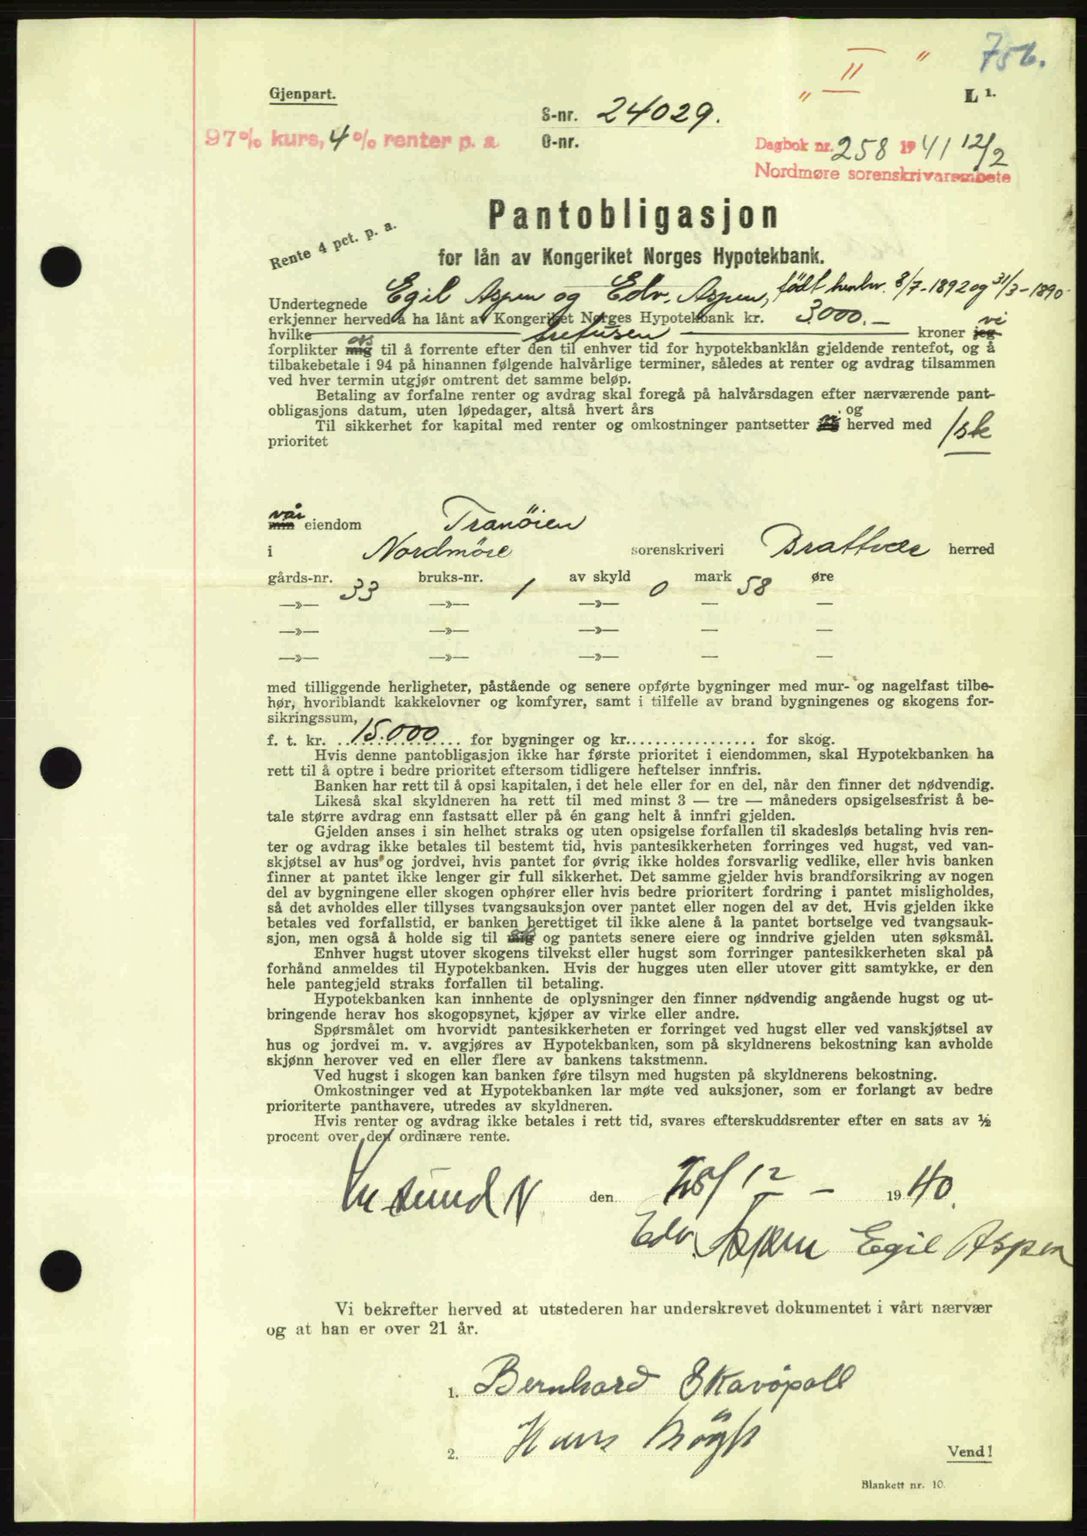 756.
" II "
Gjenpart.
L 1.
S-nr. 24029.
97% kurs, 4% renter p. a.
O-nr.
Dagbok nr. 258 1941 12/2
Nordmøre sorenskrivarembete
Pantobligasjon
Rente 4 pct. p. a.
for lån av Kongeriket Norges Hypotekbank.
Undertegnede Egil Aspen og Edv. Aspen, født henhv. 8/7-1892 og 31/3-1890
erkjenner herved å ha lånt av Kongeriket Norges Hypotekbank kr. 3000.-
hvilke tretusen kroner jeg vi
forplikter mig oss til å forrente efter den til enhver tid for hypotekbanklån gjeldende rentefot, og å
tilbakebetale i 94 på hinannen følgende halvårlige terminer, således at renter og avdrag tilsammen
ved hver termin utgjør omtrent det samme beløp.
Betaling av forfalne renter og avdrag skal foregå på halvårsdagen efter nærværende pant-
obligasjons datum, uten løpedager, altså hvert års og
Til sikkerhet for kapital med renter og omkostninger pantsetter herved med 1ste
prioritet
vår
min eiendom Tranöien
i Nordmöre sorenskriveri Brattvær herred
gårds-nr. 33 bruks-nr. 1 av skyld 0 mark 58 øre
—»— —»— —»— — —
—»— —»— —»— — —
—»— —»— —»— — —
med tilliggende herligheter, påstående og senere opførte bygninger med mur- og nagelfast tilbe-
hør, hvoriblandt kakkelovner og komfyrer, samt i tilfelle av brand bygningenes og skogens for-
sikringssum,
f. t. kr. 15.000 for bygninger og kr. ................ for skog.
Hvis denne pantobligasjon ikke har første prioritet i eiendommen, skal Hypotekbanken ha
rett til å optre i bedre prioritet eftersom tidligere heftelser innfris.
Banken har rett til å opsi kapitalen, i det hele eller for en del, når den finner det nødvendig.
Likeså skal skyldneren ha rett til med minst 3 — tre — måneders opsigelsesfrist å be-
tale større avdrag enn fastsatt eller på én gang helt å innfri gjelden.
Gjelden anses i sin helhet straks og uten opsigelse forfallen til skadesløs betaling hvis ren-
ter og avdrag ikke betales til bestemt tid, hvis pantesikkerheten forringes ved hugst, ved van-
skjøtsel av hus og jordvei, hvis pantet for øvrig ikke holdes forsvarlig vedlike, eller hvis banken
finner at pantet ikke lenger gir full sikkerhet. Det samme gjelder hvis brandforsikring av nogen
del av bygningene eller skogen ophører eller hvis bedre prioritert fordring i pantet misligholdes,
så det avholdes eller tillyses tvangsauksjon over pantet eller nogen del av det. Hvis gjelden ikke
betales ved forfallstid, er banken berettiget til ikke alene å la pantet bortselge ved tvangsauk-
sjon, men også å holde sig til mig og pantets senere eiere og inndrive gjelden uten søksmål.
Enhver hugst utover skogens tilvekst eller hugst som forringer pantesikkerheten skal på
forhånd anmeldes til Hypotekbanken. Hvis der hugges uten eller utover gitt samtykke, er den
hele pantegjeld straks forfallen til betaling.
Hypotekbanken kan innhente de oplysninger den finner nødvendig angående hugst og ut-
bringende herav hos skogopsynet, kjøper av virke eller andre.
Spørsmålet om hvorvidt pantesikkerheten er forringet ved hugst eller ved vanskjøtsel av
hus og jordvei m. v. avgjøres av Hypotekbanken, som på skyldnerens bekostning kan avholde
skjønn herover ved en eller flere av bankens takstmenn.
Ved hugst i skogen kan banken føre tilsyn med hugsten på skyldnerens bekostning.
Omkostninger ved at Hypotekbanken lar møte ved auksjoner, som er forlangt av bedre
prioriterte panthavere, utredes av skyldneren.
Hvis renter og avdrag ikke betales i rett tid, svares efterskuddsrenter efter en sats av ½
procent over den ordinære rente.
Kr.sund N den 28/12 - 1940.
Edv. Aspen Egil Aspen
Vi bekrefter herved at utstederen har underskrevet dokumentet i vårt nærvær
og at han er over 21 år.
1. Bernhard Skaröpoll
2. Hans
Vend!
Blankett nr. 10.